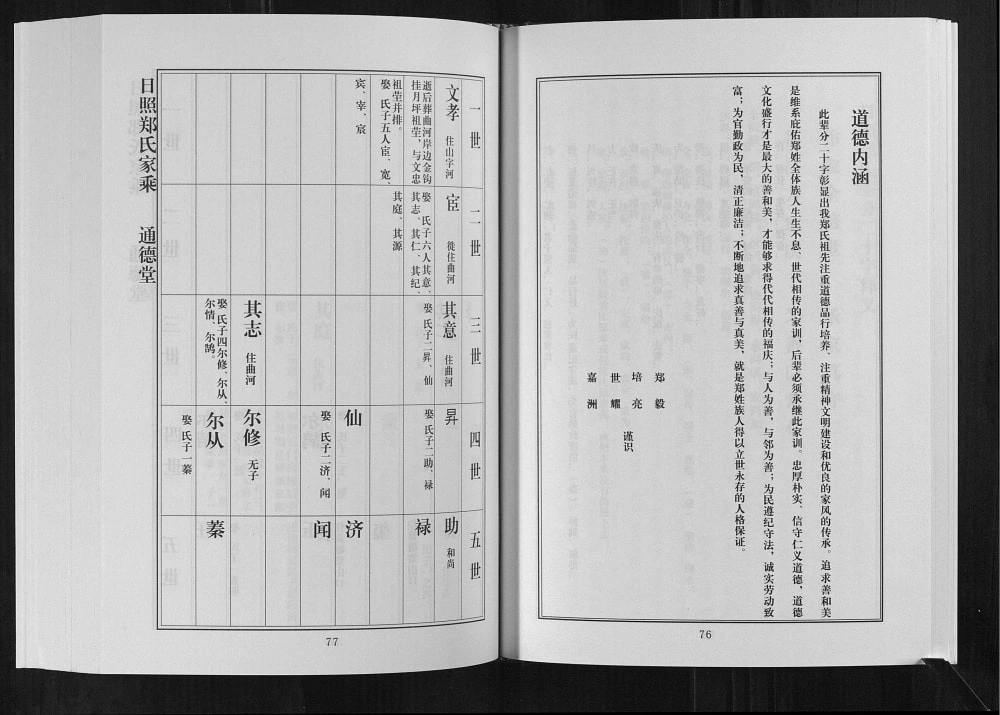 道德内涵
此辈分二十字彰显出我郑氏祖先注重道德品行培养、注重精神文明建设和优良的家风的传承。追求善和美
是维系庇佑郑姓全体族人生生不息、世代相传的家训，后辈必须承继此家训。忠厚朴实、信守仁义道德，道德
文化盛行才是最大的善和美，才能够求得代代相传的福庆；与人为善，与邻为善；为民遵纪守法，诚实劳动致
富；为官勤政为民，清正廉洁；不断地追求真善与真美，就是郑姓族人得以立世永存的人格保证。
郑毅
培亮
世耀
嘉洲
谨识
76
一世
文孝 住山字河
逝后葬曲河岸边金钩
挂月坪祖茔，与文忠
祖茔并排。
娶 氏子五人宦、宽、
宾、宰、宸
二世
宦 徙住曲河
娶 氏子六人其意、
其志、其仁、其纪、
其庭、其源
三世
其意 住曲河
娶 氏子二昇、仙
其志 住曲河
娶 氏子四尔修、尔从、
尔情、尔鹄。
四世
昇
娶 氏子二助、禄
仙
娶 氏子二济、闻
尔修 无子
尔从
娶 氏子一蓁
五世
助 和尚
禄
济
闻
蓁
日照郑氏家乘 通德堂
77